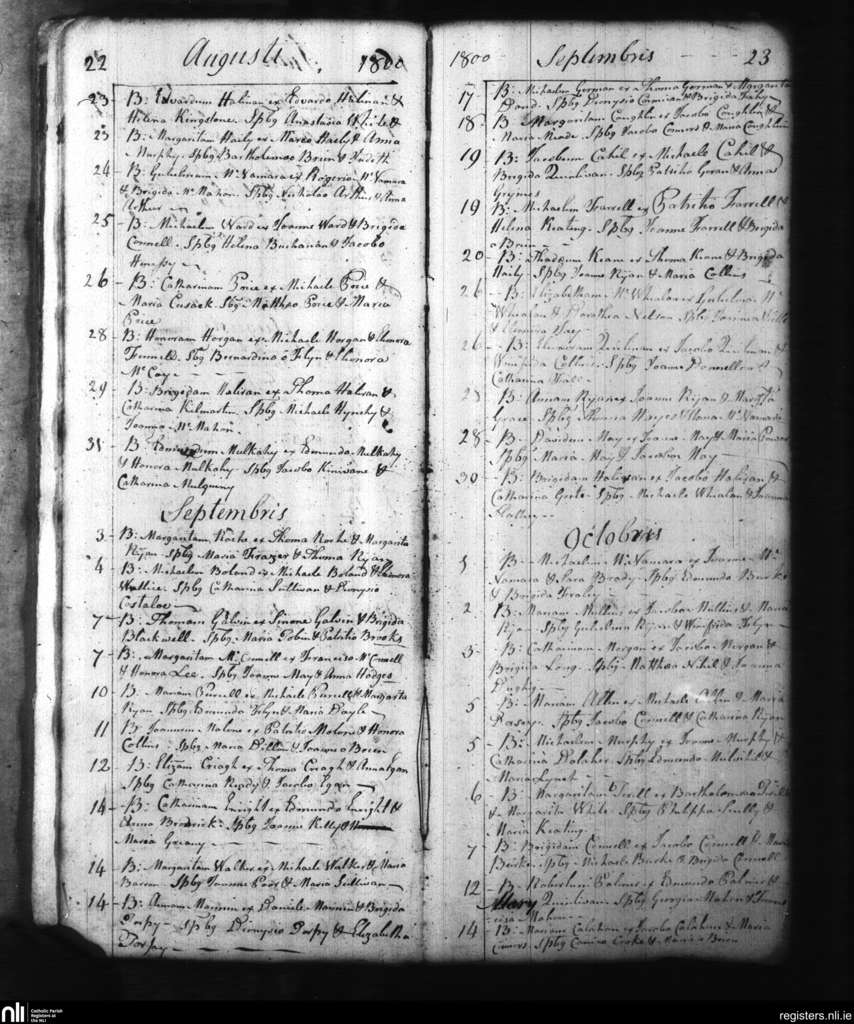 22 Augusti 1800
23 B: Edvardum Halinan ex Edvardo Halinan &
Helena Kingstone. Spbg Anastasia White &
23 B: Margaritam Haily ex Marco Haily & Anna
Murphy. Spbg Bartholomeo Brien &
24 B: Gulielmum McNamara ex Rogerio McNamara
& Brigida McMahon. Spbg Nicholao Arthur & Anna
Arthur
25 B: Michaelem Ward ex Joanne Ward & Brigida
Connell. Spbg Helena Buchanan & Jacobo
26 B: Catharinam Price ex Michaele Price &
Maria Cusack. Sbg Mattheo Price & Maria
Price
28 B: Honoram Horgan ex Michaele Horgan & Elenora
Funnell. Sbg Bernardino o Felyn & Elenora
McCoy
29 B: Brigidam Halisan ex Thoma Halisan &
Catharina Kilmartin. Spbg Michaele Hynchy &
Joanna McMahon
31 B: Edmundum Mulkahy ex Edmundo Mulkahy
& Honora Mulkahy Spbg Jacobo Kinivane &
Catharina Mulqueny
Septembris
3 B: Margaritam Roche ex Thoma Roche & Margarita
Ryan Spbg Maria Frazer & Thoma Ryan
4 B: Michaelem Boland ex Michaele Boland & Elenora
Wallice. Spbg Catharina Sullivan & Dionysio
Costaloe
7 B: Thomam Galvin ex Simone Galvin & Brigida
Blackwell. Spbg Maria Tobin & Patritio Brooks
7 B: Margaritam McConnell ex Francisco McConnell
& Honora Lee. Spbg Joanne May & Anna Hodges
10 B: Mariam Purcell ex Michaele Purcell & Margarita
Ryan Spbg Edmundo Felyn & Maria Doyle
11 B: Joannem Malone ex Patritio Malone & Honora
Collins. Spbg Maria Dillon & Joanne o Brien
12 B: Elizam Criagh ex Thoma Criagh & Anna Egan
Spbg Catharina Kirby & Jacobo Egan
14 B: Catharinam Enright ex Edmundo Enright &
Anna Brodrick. Spbg Joanne Kelly &
Maria Greany
14 B: Margaritam Walker ex Michaele Walker & Maria
Barron. Spbg Joanne Poor & Maria Sullivan
14 B: Annam Mannin ex Daniele Mannin & Brigida
Torpy. Spbg Dionysio Torpy & Elizabetha
Torpay
1800 Septembris 23
17 B: Michaelem Gorman ex Thoma Gorman & Margarita
Dand. Spbg Dionysio & Brigida
18 B: Margaritam Coughlin ex Jacobo Coughlin &
Maria Meade. Spbg Jacobo Conners & Maria Coughlin
19 B: Jacobum Cahil ex Michaele Cahil &
Brigida Quinlivan. Spbg Patritio Goran & Anna
Grymes
19 B: Michaelem Farrell ex Patritio Farrell &
Helena Keating. Spbg Joanne Farrell & Brigida
o Brien
20 B: Thaddeum Keane ex Thoma Keane & Brigida
Haily. Spbg Joanne Ryan & Maria Collins
26 B: Elizabetham McWhealan ex Gulielmo Mc
Whealan & Dorothea Nelson. Spbg
& Elenora
26 B: Quinlivan ex Jacobo Quinlivan &
Winifrida Collins. Spbg Joanne Donnellon &
Catharina
27 B: Annam Ryan ex Joanne Ryan & Martha
Grace. Spbg Thoma Moyes & Anna McNamara
28 B: Davidem May ex Joanne May & Maria Power
Spbg Maria May & Jacobo May
30 B: Brigidam Halisan ex Jacobo Halisan &
Catharina Spbg Michaele Whealan & Joanna
Slattery
Octobris
1 B: Michaelem McNamara ex Joanne Mc
Namara & Sara Brady. Spbg Edmundo Burke
& Brigida
2 B: Mariam Mullins ex Jacobo Mullins & Maria
Ryan. Spbg Gulielmo Ryan & Winifrida Felyn
3 B: Catharinam Morgan ex Jacobo Morgan &
Brigida Long. Spbg Mattheo Nihil & Joanna
5 B: Mariam Allen ex Michaele Allen & Maria
Spbg Jacobo Connell & Catharina Ryan
5 B: Michaelem Murphy ex Joanne Murphy &
Catharina Dalaher. Spbg Edmundo &
Maria Lynet
6 B: Margaritam ex Bartholomeo
& Margarita White. Spbg Philippo Scully &
Maria Keating
7 B: Brigidam Connell ex Jacobo Connell & Maria
Burke. Spbg Michaele Burke & Brigida Connell
12 B: Robertum Palmer ex Edmundo Palmer &
Mary Quinlivan Spbg Georgio Mahon &
Mahon
14 B: Mariam Calahan ex Jacobo Calahan & Maria
Conners. Spbg Cooke & Maria o Brien
nli Catholic Parish
Registers at
the NLI
registers.nli.ie